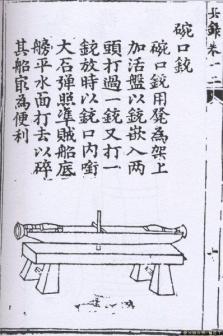 碗口銃
碗口銃用凳為架上
加活盤以銃嵌入兩
頭打過一銃又打一
銃放時以銃口內銜
大石彈照準賊船底
膀平水面打去以碎
其船最為便利